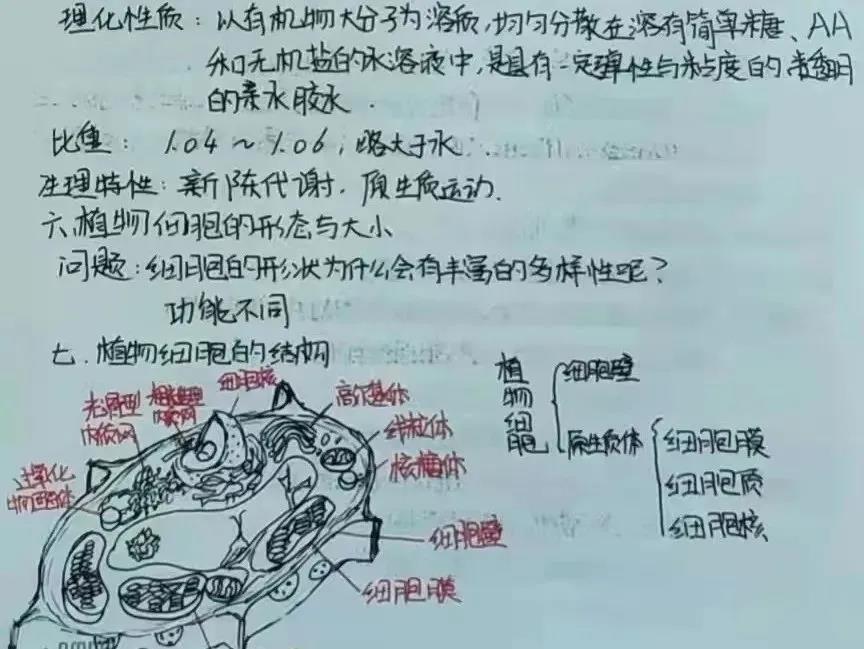 理化性质：以有机物大分子为溶质，均匀分散在溶有简单糖、AA
和无机盐的水溶液中，是具有一定弹性与粘度的、半透明
的亲水胶水.
比重：1.04～1.06，略大于水.
生理特性：新陈代谢，原生质运动.
六.植物细胞的形态与大小
问题：细胞的形状为什么会有丰富的多样性呢？
功能不同
七.植物细胞的结构
植物细胞
细胞壁
原生质体
细胞膜
细胞质
细胞核
光滑型
内质网
粗糙型
内质网
细胞核
高尔基体
线粒体
核糖体
过氧化
物酶体
细胞壁
细胞膜